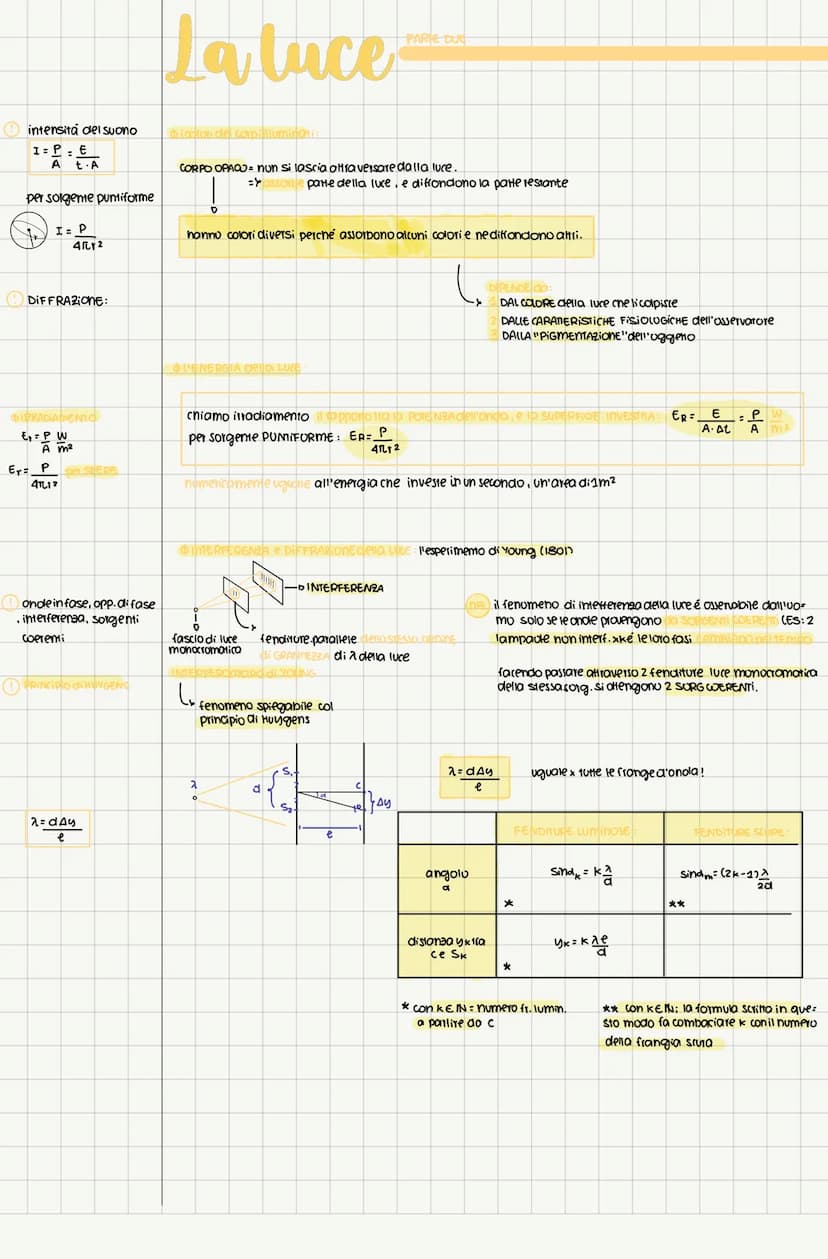 La luce
PARTE DUE
! intensità del suono
I = P/A = E/t·A
per sorgente puntiforme
I = P/4πr²
! DIFFRAZIONE:
IRRADIAMENTO
Er = P/A W/m²
Er = P/4πr² per SFERA
! onde in fase, opp. di fase
, interferenza, sorgenti
coerenti
! PRINCIPIO di HUYGENS
λ = dΔy/l
I colori dei corpi illuminati:
CORPO OPACO = non si lascia attraversare dalla luce.
=> assorbe parte della luce, e diffondono la parte restante
hanno colori diversi perché assorbono alcuni colori e ne diffondono altri.
DIPENDE da:
1 DAL COLORE della luce che li colpisce
2 DALLE CARATTERISTICHE FISIOLOGICHE dell'osservatore
3 DALLA "PIGMENTAZIONE" dell'oggetto
L'ENERGIA della LUCE
chiamo irradiamento il rapporto tra la POTENZA dell'onda, e la SUPERFICIE INVESTITA: ER = E/A·Δt = P/A W/m²
per sorgente PUNTIFORME: ER = P/4πr²
numericamente uguale all'energia che investe in un secondo, un'area di 1m²
INTERFERENZA e DIFFRAZIONE della LUCE: l'esperimento di Young (1801)
INTERFERENZA
fascio di luce
monocromatico
fenditure parallele dello stesso ORDINE
di GRANDEZZA di λ della luce
INTERFEROMETRO di YOUNG
fenomeno spiegabile col
principio di Huygens
il fenomeno di interferenza della luce é osservabile dall'uo-
mo solo se le onde provengono da SORGENTI COERENTI (ES: 2
lampade non interf. xké le loro fasi CAMBIANO NEL TEMPO
facendo passare attraverso 2 fenditure luce monocromatica
della stessa sorg. si ottengono 2 SORG COERENTI.
λ d S₁ S₂ α C Δy l
λ = dΔy/l
uguale x tutte le frange d'onda!
FENDITURE LUMINOSE: FENDITURE SCURE:
angolo
α
sinαk = k λ/d
*
sinαm = (2k-1) λ/2d
**
distanza yk tra
C e Sk
yk = k λl/d
*
* con k ∈ ℕ = numero fr. lumin.
a partire da C
** con k ∈ ℕ; la formula scritta in que-
sto modo fa combaciare k con il numero
della frangia scura